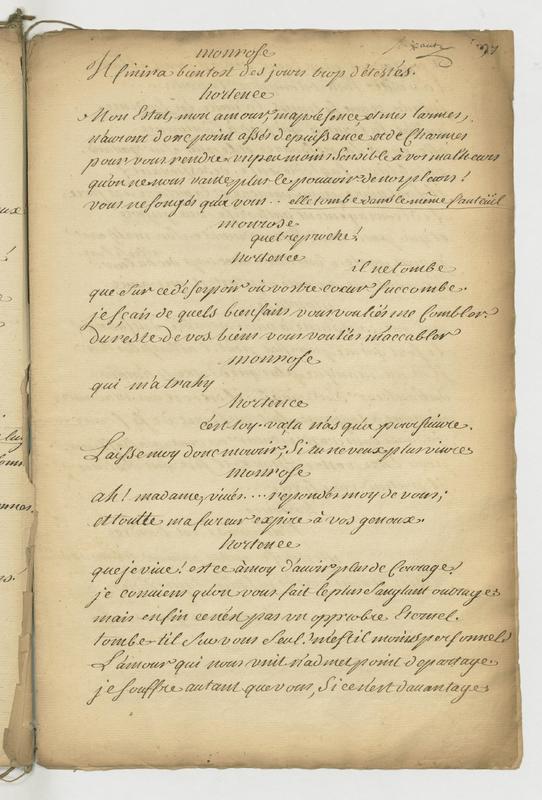 97
monrose
Il finira bientost des jours trop détestés.
hortence
Mon Estat, mon amour, ma présence et mes larmes,
n'auront donc point assés de puissance et de Charmes
pour vous rendre un peu moins sensible à vos malheurs
qu'on ne nous vante plus le pouvoir de nos pleurs!
vous ne songés qu'a vous .. elle tombe dans le même fauteüil
monrose
quel reproche!
hortence
il ne tombe
que sur ce désespoir où vostre coeur succombe.
je sçais de quels bienfaits vous vouliés me combler
du reste de vos biens vous vouliés m'accabler
monrose
qui m'a trahy
hortence
c'est toy. va, tu n'as qu'a poursuivre.
Laisse moy donc mourir, si tu ne veux plus vivre
monrose
ah! madame, vivés ... repondés moy de vous;
et toutte ma fureur expire à vos genoux.
hortence
que je vive! est ce à moy d'avoir plus de Courage!
je conviens qu'on vous fait le plus sanglant outrage
mais enfin ce n'est pas un opprobre Eternel.
tombe t'il sur vous seul? m'est il moins personnel?
L'amour qui nous unit n'admet point de partage
je souffre autant que vous, si ce n'est d'avantage